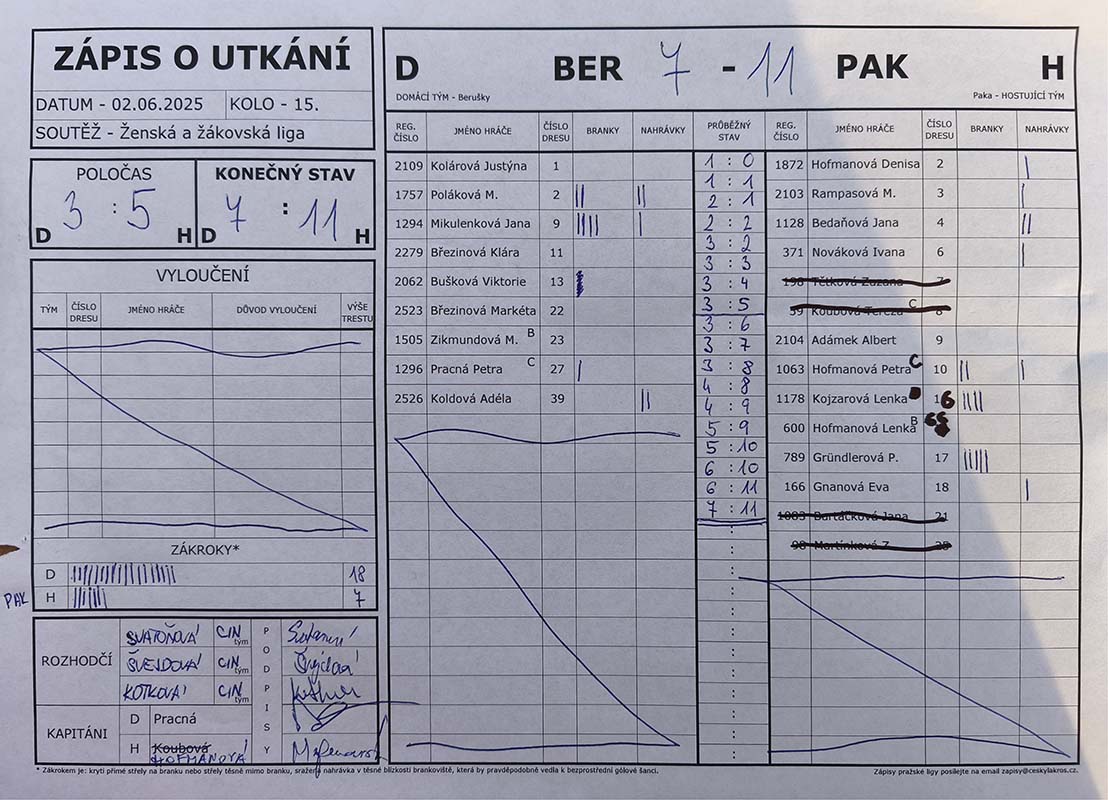 ZÁPIS O UTKÁNÍ
DATUM - 02.06.2025 KOLO - 15.
SOUTĚŽ - Ženská a žákovská liga
POLOČAS KONEČNÝ STAV
3 : 5 7 : 11
D H D H
VYLOUČENÍ
TÝM ČÍSLO DRESU JMÉNO HRÁČE DŮVOD VYLOUČENÍ VÝŠE TRESTU
ZÁKROKY*
D 18
PAK H 7
ROZHODČÍ
SVATOŇOVÁ CIN tým
ŠVEJDOVÁ CIN tým
KOTKOVÁ CIN tým
PODPISY
KAPITÁNI
D Pracná
H Koubová
HOFMANOVÁ
D BER 7 - 11 PAK H
DOMÁCÍ TÝM - Berušky Paka - HOSTUJÍCÍ TÝM
REG. ČÍSLO JMÉNO HRÁČE ČÍSLO DRESU BRANKY NAHRÁVKY PRŮBĚŽNÝ STAV REG. ČÍSLO JMÉNO HRÁČE ČÍSLO DRESU BRANKY NAHRÁVKY
2109 Kolárová Justýna 1
1757 Poláková M. 2 || ||
1294 Mikulenková Jana 9 |||| |
2279 Březinová Klára 11
2062 Bušková Viktorie 13
2523 Březinová Markéta 22
1505 Zikmundová M. B 23
1296 Pracná Petra C 27 |
2526 Koldová Adéla 39 ||
1 : 0
1 : 1
2 : 1
2 : 2
3 : 2
3 : 3
3 : 4
3 : 5
3 : 6
3 : 7
3 : 8
4 : 8
4 : 9
5 : 9
5 : 10
6 : 10
6 : 11
7 : 11
1872 Hofmanová Denisa 2 |
2103 Rampasová M. 3 |
1128 Bedaňová Jana 4 ||
371 Nováková Ivana 6 |
198 Tětková Zuzana 7
59 Koubová Tereza C 8
2104 Adámek Albert 9
1063 Hofmanová Petra C 10 || |
1178 Kojzarová Lenka 16 ||||
600 Hofmanová Lenka B 65
789 Gründlerová P. 17 |||||
166 Gnanová Eva 18 |
1003 Bartáčková Jana 21
98 Martínková Z. 25
* Zákrokem je: krytí přímé střely na branku nebo střely těsně mimo branku, sražená nahrávka v těsné blízkosti brankoviště, která by pravděpodobně vedla k bezprostřední gólové šanci.
Zápisy pražské ligy posílejte na email zapisy@ceskylakros.cz.